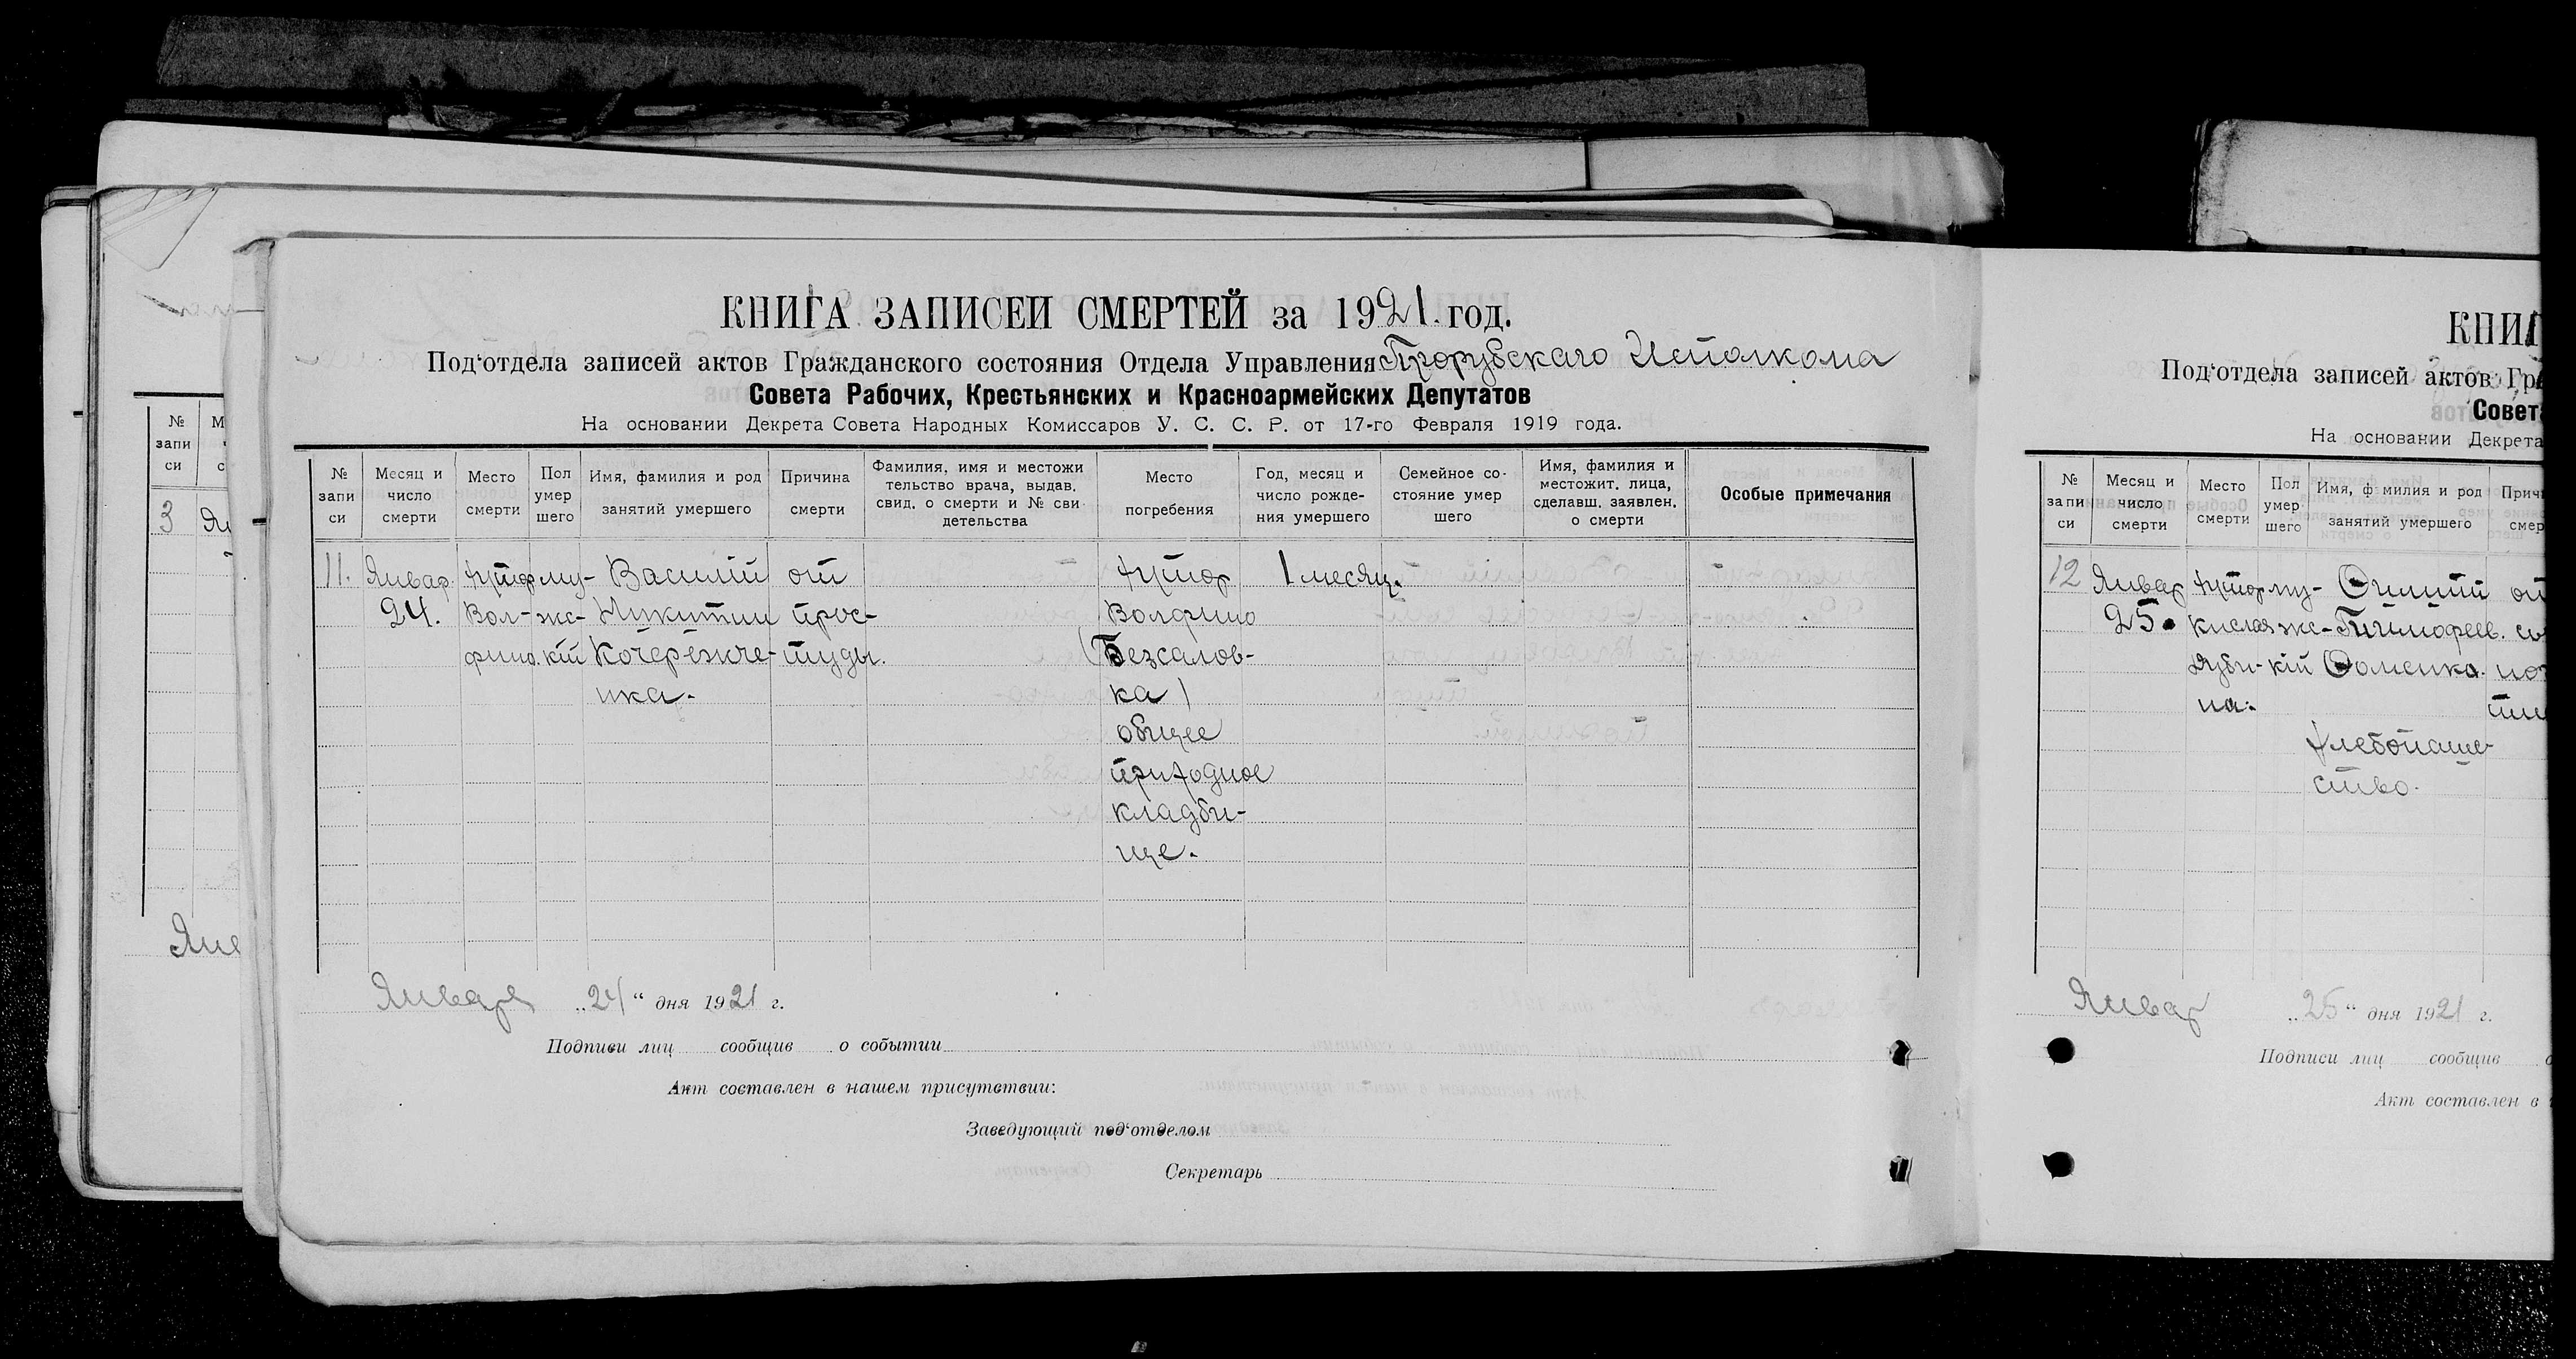 КНИГА ЗАПИСЕЙ СМЕРТЕЙ за 1921 год.
Под'отдела записей актов Гражданского состояния Отдела Управления Прорубскаго Исполкома
Совета Рабочих, Крестьянских и Красноармейских Депутатов
На основании Декрета Совета Народных Комиссаров У. С. С. Р. от 17-го Февраля 1919 года.
№ запи си
Месяц и число смерти
Место смерти
Пол умер шего
Имя, фамилия и род занятий умершего
Причина смерти
Фамилия, имя и местожи тельство врача, выдав. свид. о смерти и № сви детельства
Место погребения
Год, месяц и число рожде- ния умершего
Семейное со- стояние умер шего
Имя, фамилия и местожит. лица, сделавш. заявлен. о смерти
Особые примечания
11. Январ. хутор му- Василий от хутор 1 месяц.
24. Вол- жс- Никитин прос- Волфино
фино. кій Кочережче- туды. (Безсалов-
нка. ка)
общее
приходное
кладби-
ще.
Января „24“ дня 1921 г.
Подписи лиц сообщив о событии
Акт составлен в нашем присутствии:
Заведующий под'отделом
Секретарь
№ запи си
3 Ян
Янв
Под'отдела записей актов Гра
Совета
На основании Декрета
№ запи си
Месяц и число смерти
Место смерти
Пол умер- шего
Имя, ф милия и род занятий умершего
Причи смер
12 Январ хутор му- от
25. Кислая жс- Тимофеев.
Дуби- кій Фоменко.
на.
хлебопаше-
ство.
Январ „25“ дня 1921 г.
Подписи лиц сообщив о
Акт составлен в